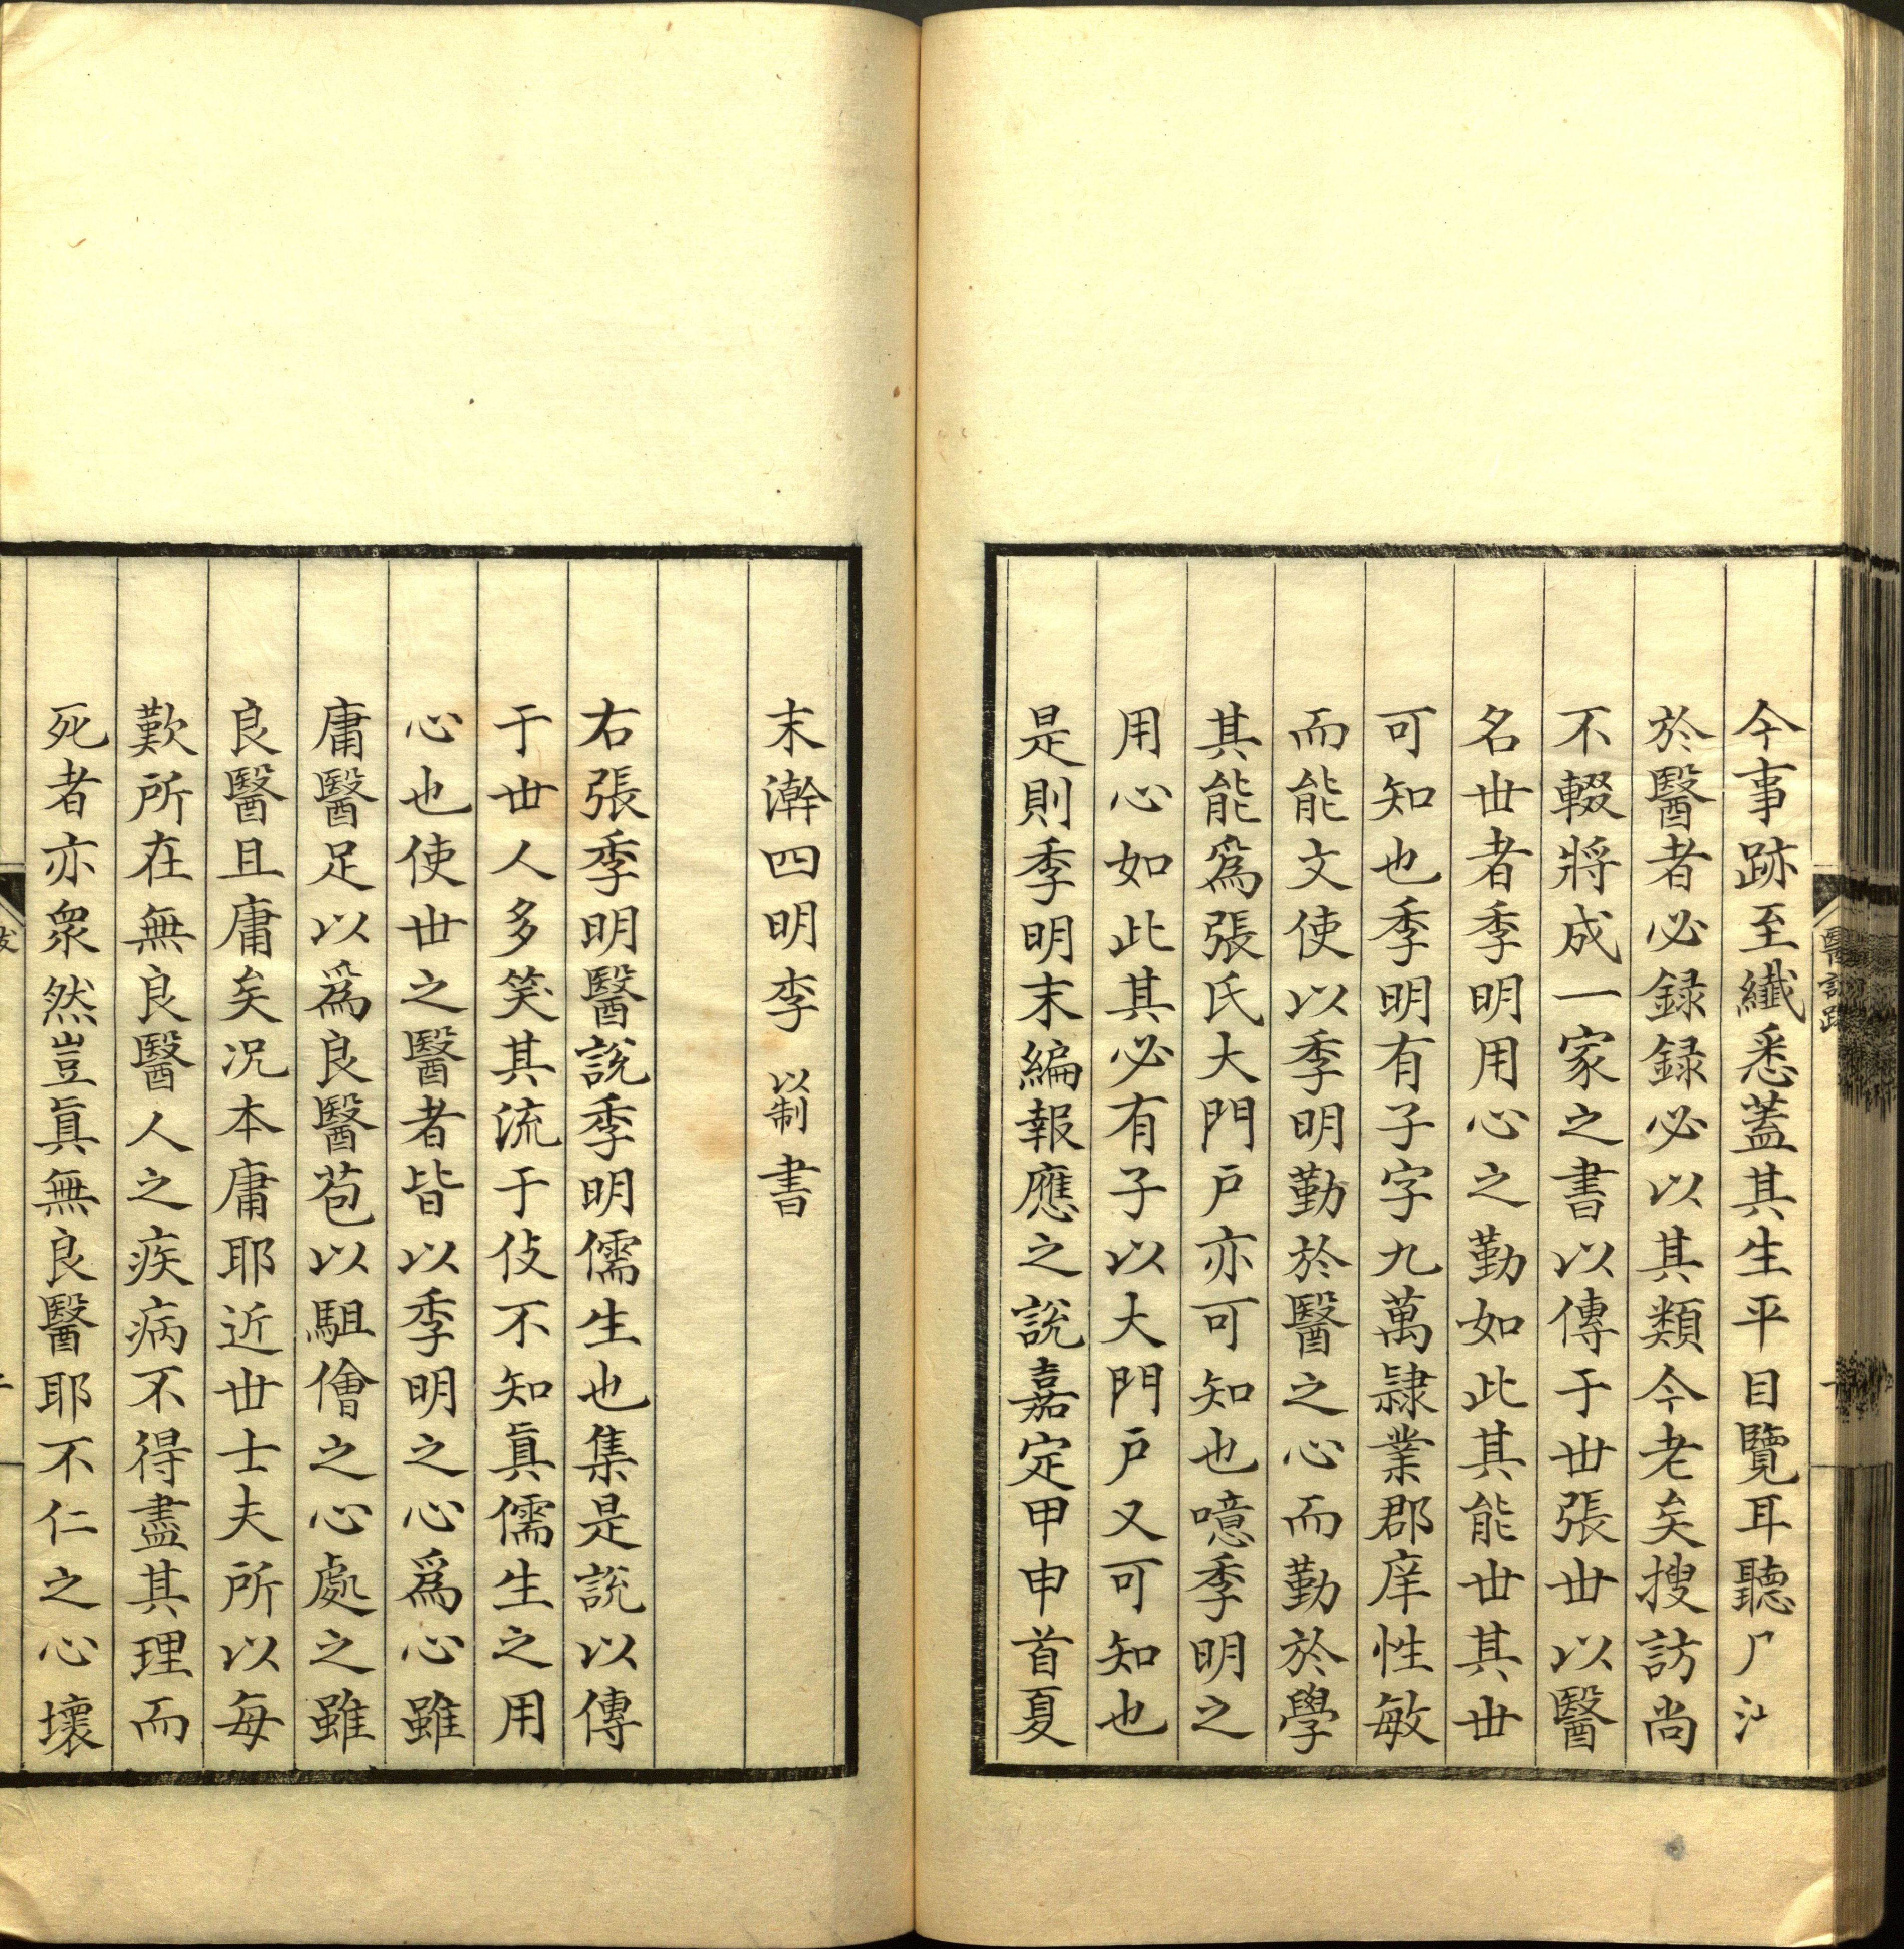 今事跡至纖悉蓋其生平目覽耳聽厂
於醫者必録録必以其類今老矣搜訪尚
不輟將成一家之書以傳于丗張丗以醫
名丗者季明用心之勤如此其能丗其丗
可知也季明有子字九萬隷業郡庠性敏
而能文使以季明勤於醫之心而勤於學
其能爲張氏大門戸亦可知也噫季明之
用心如此其必有子以大門戸又可知也
是則季明末編報應之說嘉定甲申首夏
末澣四明李以制書
右張季明醫說季明儒生也集是說以傳
于丗人多笑其流于伎不知眞儒生之用
心也使丗之醫者皆以季明之心爲心雖
庸醫足以爲良醫苞以駔儈之心處之雖
良醫且庸矣况本庸耶近丗士夫所以每
歎所在無良醫人之疾病不得盡其理而
死者亦衆然豈眞無良醫耶不仁之心壞